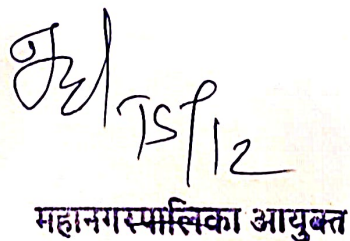 15/12
महानगरपालिका आयुक्त